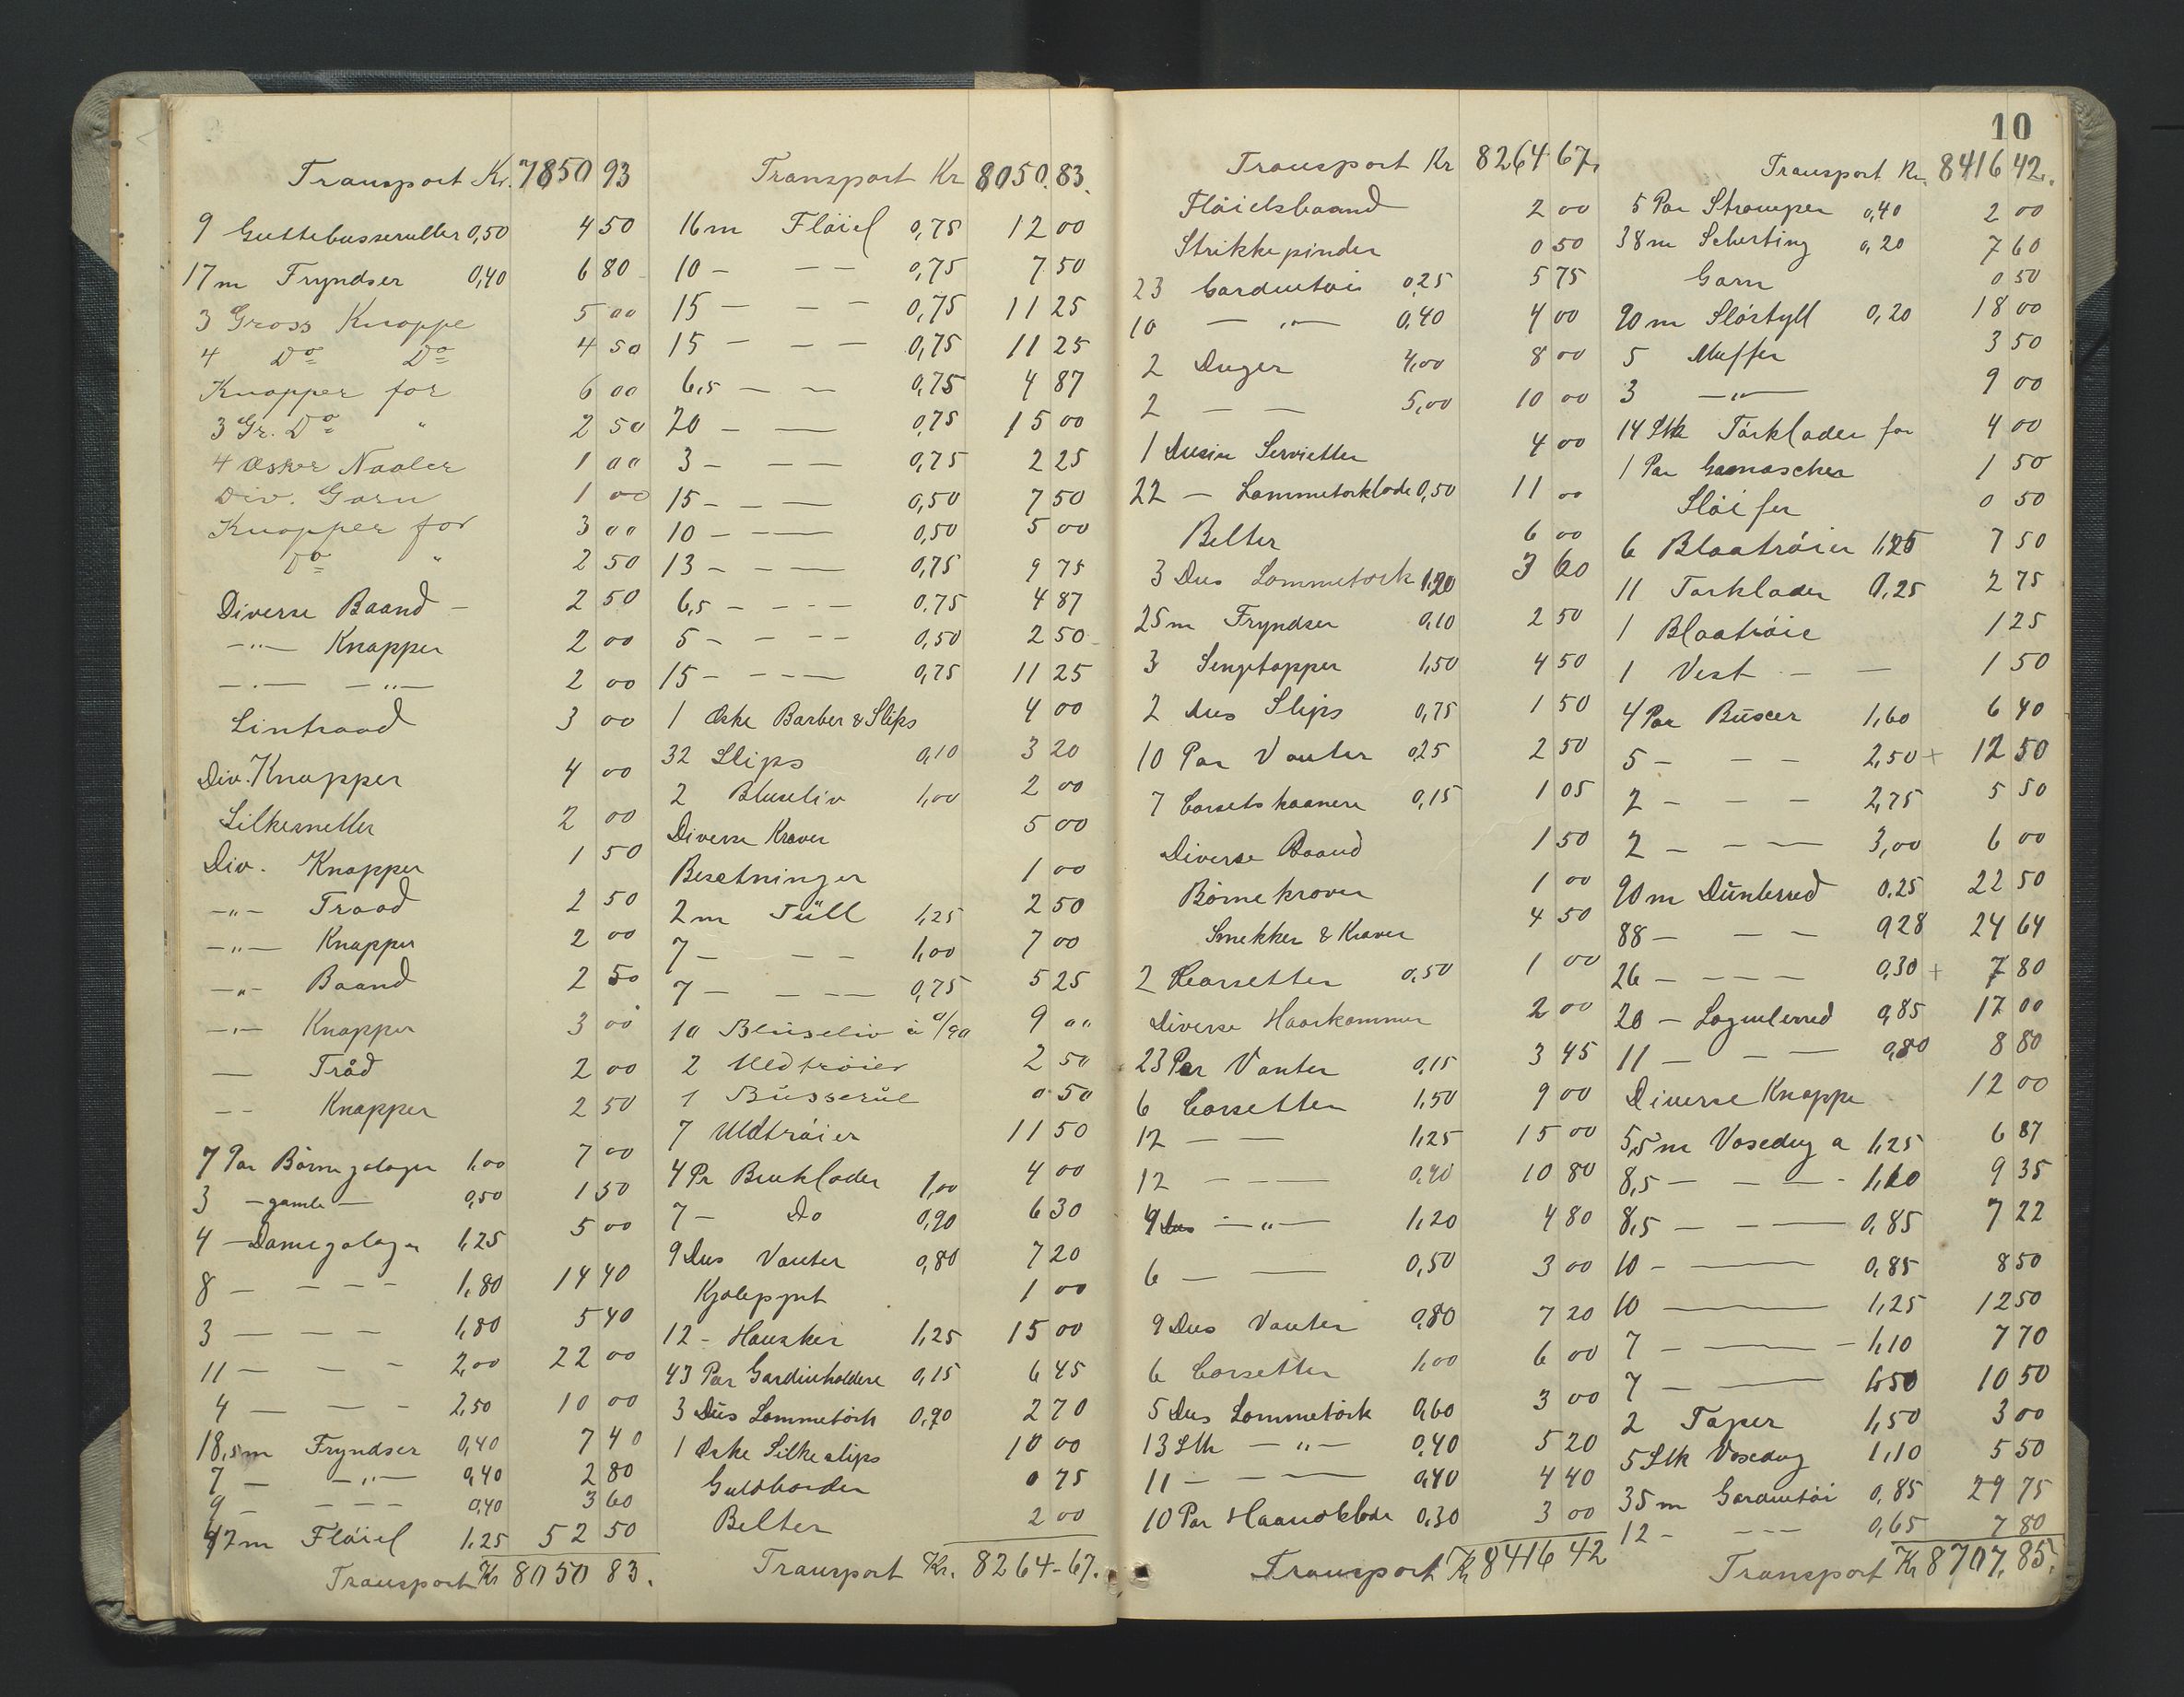 Transport Kr. 7850 93
9 Guttebusseruller 0,50 4 50
17 m Fryndser 0,40 6 80
3 Gross Knappe 5 00
4 Do Do 4 50
Knapper for 6 00
3 Gr. Do " 2 50
4 Æsker Naaler 1 00
Div. Garn 1 00
Knapper for 3 00
Do " 2 50
Diverse Baand - 2 50
-"- Knapper 2 00
-"- -"- 2 00
Lintraad 3 00
Div. Knapper 4 00
Silkesnetter 2 00
Div. Knapper 1 50
-"- Traad 2 50
-"- Knapper 2 00
-"- Baand 2 50
-"- Knapper 3 00
— Tråd 2 00
-- Knapper 2 50
7 Par Börnegalager 1,00 7 00
3 - gamle - 0,50 1 50
4 - Damegalager 1,25 5 00
8 - - - - 1,80 14 40
3 - - - - 1,80 5 40
11 - - - 2,00 22 00
4 - - - - 2,50 10 00
18,5 m Fryndser 0,40 7 40
7 - -"- 0,40 2 80
9 - - - - 0,40 3 60
42 m Flöiel 1,25 52 50
Transport Kr 8050 83.
Transport Kr 8050.83.
16 m Flöiel 0,75 12 00
10 - - - 0,75 7 50
15 - - - 0,75 11 25
15 - - - - 0,75 11 25
6,5 - - 0,75 4 87
20 - - 0,75 15 00
3 - - - 0,75 2 25
15 - - - 0,50 7 50
10 - - - 0,50 5 00
13 - - - 0,75 9 75
6,5 - - - - 0,75 4 87
5 - - - - 0,50 2 50
15 - - - - 0,75 11 25
1 Æske Barber & Slips 4 00
32 Slips 0,10 3 20
2 Bluseliv 1,00 2 00
Diverse Kraver 5 00
Besetninger 1 00
2 m Tüll 1,25 2 50
7 - - - 1,00 7 00
7 - - - - 0,75 5 25
10 Blúseliv à 0/90 9 00
2 Uldtröier 2 50
1 Bússerúl 0 50
7 Uldtröier 11 50
4 Pr Benklader 1,00 4 00
7 - Do 0,90 6 30
9 Dus Vanter 0,80 7 20
Kjolepynt 1 00
12 - Hansker 1,25 15 00
43 Par Gardinholdere 0,15 6 45
3 Dús Lommetörk 0,90 2 70
1 Æske Silkeslips 10 00
Guldborder 0 75
Belter 2 00
Transport Kr. 8264-67.
Transport Kr 8264 67.
Flöielsbaand 2 00
Strikkepinder 0 50
23 Gardintöi 0,25 5 75
10 - " - 0,40 4 00
2 Duger 4,00 8 00
2 - - 5,00 10 00
1 Dusin Servietter 4 00
22 - Lommetorklade 0,50 11 00
Belter 6 00
3 Dus Lommetork 1,20 3 60
25 m Fryndser 0,10 2 50
3 Sengtapper 1,50 4 50
2 dus Slips 0,75 1 50
10 Par Vanter 0,25 2 50
7 Corsetskaanere 0,15 1 05
Diverse Baand 1 50
Börnekraver 1 00
Smekker & Kraver 4 50
2 Corsetter 0,50 1 00
Diverse Haarkammer 2 00
23 Par Vanter 0,15 3 45
6 Corsetter 1,50 9 00
12 - - 1,25 15 00
12 - - - 0,90 10 80
4 Dus - " - 1,20 4 80
6 - - 0,50 3 00
9 Dus Vanter 0,80 7 20
6 Corsetter 1,00 6 00
5 Dus Lommetörk 0,60 3 00
13 Stk - " - 0,40 5 20
11 - - - 0,40 4 40
10 Par Haandklade 0,30 3 00
Transport Kr 8416 42
10
Transport Kr. 8416 42.
5 Par Strømper 0,40 2 00
38 m Scherting 0,20 7 60
Garn 0 50
90 m Slörtyll 0,20 18 00
5 Muffer 3 50
3 -"- 9 00
14 Stk Törklader for 4 00
1 Par Gamascher 1 50
Slöifer 0 50
6 Blaatröier 1,25 7 50
11 Torklader 0,25 2 75
1 Blaatröie 1 25
1 Vest - - 1 50
4 Par Búxer 1,60 6 40
5 - - - 2,50 + 12 50
2 - - - 2,75 5 50
2 - - - 3,00 6 00
90 m Dúnlerred 0,25 22 50
88 - - - 0,28 24 64
26 - - - - 0,30 + 7 80
20 - Lagenlerred 0,85 17 00
11 - - - 0,80 8 80
Diverse Knappe 12 00
5,5 m Voxedug a 1,25 6 87
8,5 - - - - 1,10 9 35
8,5 - - - 0,85 7 22
10 - - 0,85 8 50
10 - 1,25 12 50
7 - - - 1,10 7 70
7 - - 1,50 10 50
2 Taper 1,50 3 00
5 Stk Voxedug 1,10 5 50
35 m Gardintöi 0,85 29 75
12 - - - - 0,65 7 80
Transport Kr 8707,85.